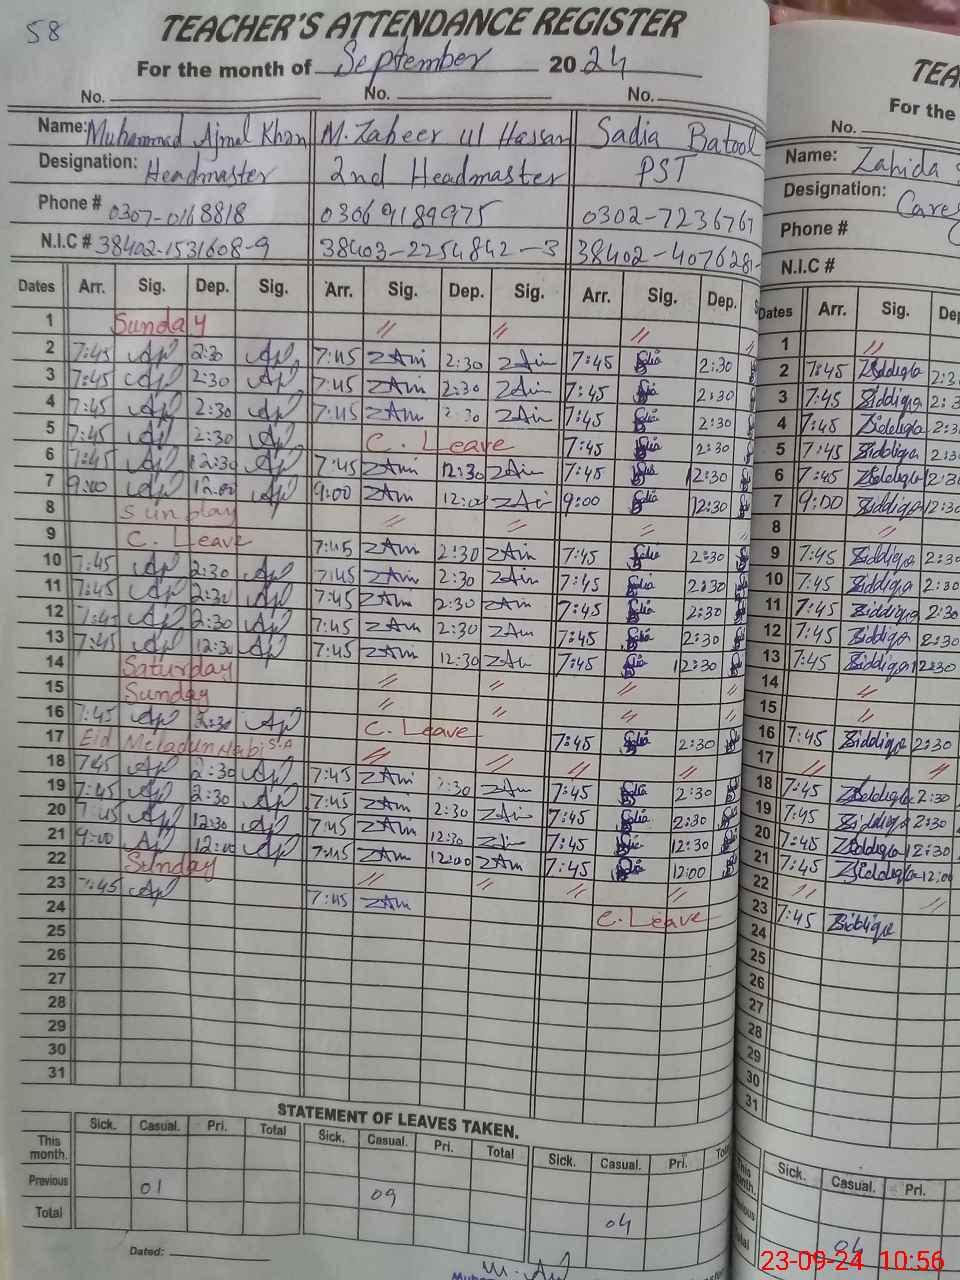 58
TEACHER'S ATTENDANCE REGISTER
For the month of September 2024
No. No. No.
Name: Muhammad Ajmal Khan M. Zaheer ul Hassan Sadia Batool
Designation: Headmaster 2nd Headmaster PST
Phone # 0307-0168818 03069189975 0302-7236767
N.I.C # 38402-1531608-9 38403-2254842-3 38402-4076281-
Dates Arr. Sig. Dep. Sig. Arr. Sig. Dep. Sig. Arr. Sig. Dep.
1 Sunday // // //
2 7:45 2:30 7:45 ZAm 2:30 ZAm 7:45 2:30
3 7:45 2:30 7:45 ZAm 2:30 ZAm 7:45 2:30
4 7:45 2:30 7:45 ZAm 2:30 ZAm 7:45 2:30
5 7:45 2:30 C. Leave 7:45 2:30
6 7:45 12:30 7:45 ZAm 12:30 ZAm 7:45 12:30
7 9:00 12:00 9:00 ZAm 12:00 ZAm 9:00 12:30
8 Sunday // // // //
9 C. Leave 7:45 ZAm 2:30 ZAm 7:45 2:30
10 7:45 2:30 7:45 ZAm 2:30 ZAm 7:45 2:30
11 7:45 2:30 7:45 ZAm 2:30 ZAm 7:45 2:30
12 7:45 2:30 7:45 ZAm 2:30 ZAm 7:45 2:30
13 7:45 12:30 7:45 ZAm 12:30 ZAm 7:45 12:30
14 Saturday // // // //
15 Sunday // // // //
16 7:45 2:30 C. Leave 7:45 2:30
17 Eid Meladun Nabi // // // //
18 7:45 2:30 7:45 ZAm 2:30 ZAm 7:45 2:30
19 7:45 2:30 7:45 ZAm 2:30 ZAm 7:45 2:30
20 7:45 12:30 7:45 ZAm 12:30 ZAm 7:45 12:30
21 9:00 12:00 7:45 ZAm 12:00 ZAm 7:45 12:00
22 Sunday // // // //
23 7:45 7:45 ZAm C. Leave
24
25
26
27
28
29
30
31
STATEMENT OF LEAVES TAKEN.
Sick. Casual. Pri. Total Sick. Casual. Pri. Total Sick. Casual. Pri.
This month.
Previous 01 09
Total 04
Dated:
TEA
For the
No.
Name: Zahida
Designation:
Phone #
N.I.C #
Dates Arr. Sig.
1 //
2 7:45 Siddiqa
3 7:45 Siddiqa
4 7:45 Siddiqa
5 7:45 Siddiqa
6 7:45 Siddiqa
7 9:00 Siddiqa 12:30
8 //
9 7:45 Siddiqa 2:30
10 7:45 Siddiqa 2:30
11 7:45 Siddiqa 2:30
12 7:45 Siddiqa 2:30
13 7:45 Siddiqa 12:30
14 //
15 //
16 7:45 Siddiqa 2:30
17 // //
18 7:45 Siddiqa 2:30
19 7:45 Siddiqa 2:30
20 7:45 Siddiqa 12:30
21 7:45 Siddiqa 12:00
22 // //
23 7:45 Siddiqa
24
25
26
27
28
29
30
31
Sick. Casual. Pri.
04
23-09-24 10:56